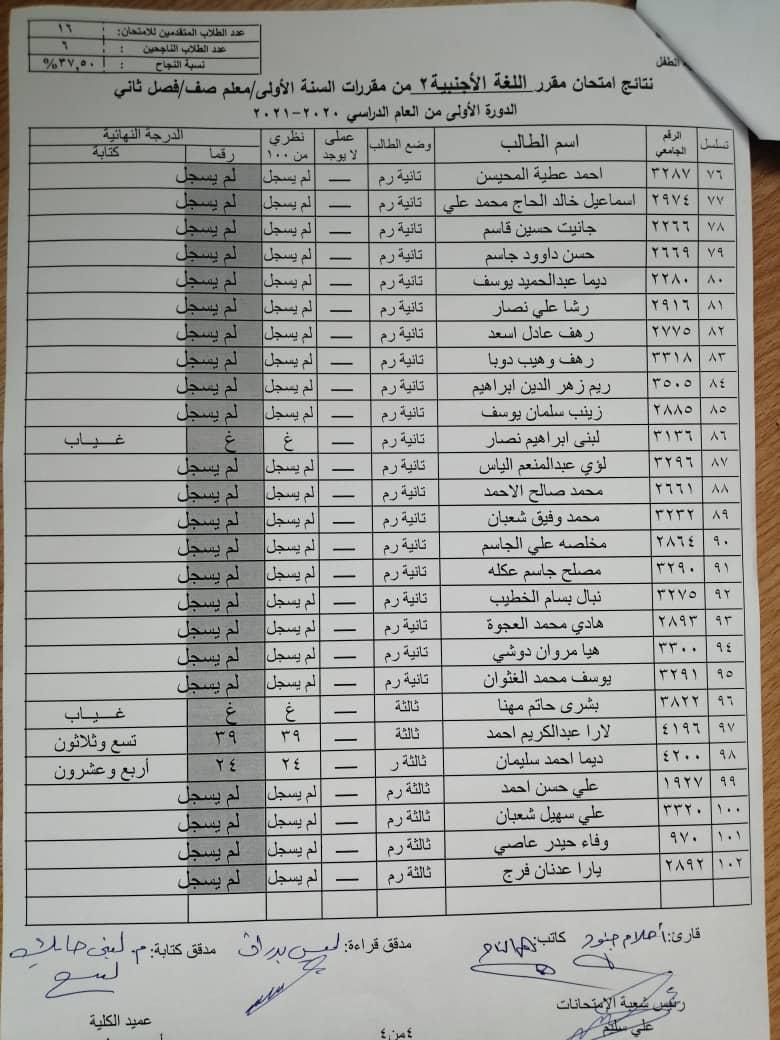 عدد الطلاب المتقدمين للامتحان: ١٦
عدد الطلاب الناجحين : ٦
نسبة النجاح : ٣٧,٥٠%
الطفل
نتائج امتحان مقرر اللغة الأجنبية٢ من مقررات السنة الأولى/معلم صف/فصل ثاني
الدورة الأولى من العام الدراسي ٢٠٢٠-٢٠٢١
تسلسل الرقم الجامعي اسم الطالب وضع الطالب عملي لا يوجد نظري من ١٠٠ الدرجة النهائية رقما كتابة
٧٦ ٣٢٨٧ احمد عطية المحيسن ثانية رم — لم يسجل لم يسجل
٧٧ ٢٩٧٤ اسماعيل خالد الحاج محمد علي ثانية رم — لم يسجل لم يسجل
٧٨ ٢٢٦٦ جانيت حسين قاسم ثانية رم — لم يسجل لم يسجل
٧٩ ٢٦٦٩ حسن داوود جاسم ثانية رم — لم يسجل لم يسجل
٨٠ ٢٢٨٠ ديما عبدالحميد يوسف ثانية رم — لم يسجل لم يسجل
٨١ ٢٩١٦ رشا علي نصار ثانية رم — لم يسجل لم يسجل
٨٢ ٢٧٧٥ رهف عادل اسعد ثانية رم — لم يسجل لم يسجل
٨٣ ٣٣١٨ رهف وهيب دوبا ثانية رم — لم يسجل لم يسجل
٨٤ ٣٥٠٥ ريم زهر الدين ابراهيم ثانية رم — لم يسجل لم يسجل
٨٥ ٢٨٨٥ زينب سلمان يوسف ثانية رم — لم يسجل لم يسجل
٨٦ ٣١٣٦ لبنى ابراهيم نصار ثانية رم — غ غ غـــيـــاب
٨٧ ٣٢٩٦ لؤي عبدالمنعم الياس ثانية رم — لم يسجل لم يسجل
٨٨ ٢٦٦١ محمد صالح الاحمد ثانية رم — لم يسجل لم يسجل
٨٩ ٣٢٣٢ محمد وفيق شعبان ثانية رم — لم يسجل لم يسجل
٩٠ ٢٨٦٤ مخلصه علي الجاسم ثانية رم — لم يسجل لم يسجل
٩١ ٣٢٩٠ مصلح جاسم عكله ثانية رم — لم يسجل لم يسجل
٩٢ ٣٢٧٥ نبال بسام الخطيب ثانية رم — لم يسجل لم يسجل
٩٣ ٢٨٩٣ هادي محمد العجوة ثانية رم — لم يسجل لم يسجل
٩٤ ٣٣٠٠ هيا مروان دوشي ثانية رم — لم يسجل لم يسجل
٩٥ ٣٢٩١ يوسف محمد الغثوان ثانية رم — لم يسجل لم يسجل
٩٦ ٣٨٢٢ بشرى حاتم مهنا ثالثة — غ غ غـــيـــاب
٩٧ ٤١٩٦ لارا عبدالكريم احمد ثالثة — ٣٩ ٣٩ تسع وثلاثون
٩٨ ٤٢٠٠ ديما احمد سليمان ثالثة ر — ٢٤ ٢٤ أربع وعشرون
٩٩ ١٩٢٧ علي حسن احمد ثالثة رم — لم يسجل لم يسجل
١٠٠ ٣٣٢٠ علي سهيل شعبان ثالثة رم — لم يسجل لم يسجل
١٠١ ٩٧٠ وفاء حيدر عاصي ثالثة رم — لم يسجل لم يسجل
١٠٢ ٢٨٩٢ يارا عدنان فرج ثالثة رم — لم يسجل لم يسجل
قارئ: أحلام جنود كاتب: مدقق قراءة: لميس بدران مدقق كتابة: م. لبنى
رئيس شعبة الامتحانات
علي سليم
عميد الكلية
٤من٤